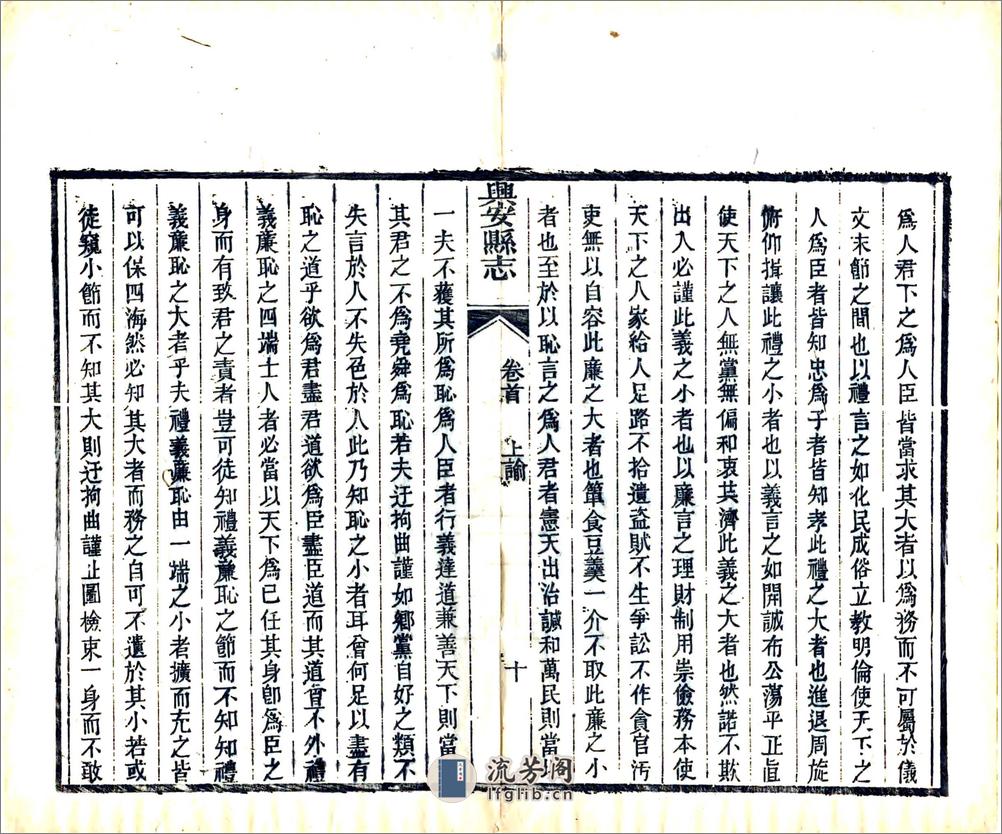 爲人君下之爲人臣皆當求其大者以爲務而不可屬於儀
文末節之間也以禮言之如化民成俗立教明倫使天下之
人爲臣者皆知忠爲子者皆知孝此禮之大者也進退周旋
俯仰揖讓此禮之小者也以義言之如開誠布公蕩平正直
使天下之人無黨無偏和衷共濟此義之大者也然諾不欺
出入必謹此義之小者也以廉言之理財制用崇儉務本使
天下之人家給人足路不拾遺盜賊不生爭訟不作貪官汚
吏無以自容此廉之大者也簞食豆羹一介不取此廉之小
者也至於以恥言之爲人君者憲天出治諴和萬民則當以
興安縣志
卷首
上諭
十
一夫不獲其所爲恥爲人臣者行義達道兼善天下則當以
其君之不爲堯舜爲恥若夫迂拘曲謹如鄉黨自好之類不
失言於人不失色於人此乃知恥之小者耳曾何足以盡有
恥之道乎欲爲君盡君道欲爲臣盡臣道而其道曾不外禮
義廉恥之四端士人者必當以天下爲已任其身卽爲臣之
身而有致君之責者豈可徒知禮義廉恥之節而不知知禮
義廉恥之大者乎夫禮義廉恥由一端之小者擴而充之皆
可以保四海然必知其大者而務之自可不遺於其小若或
徒窺小節而不知其大則迂拘曲謹止圖檢束一身而不敢
流芳阁
lfglib.cn